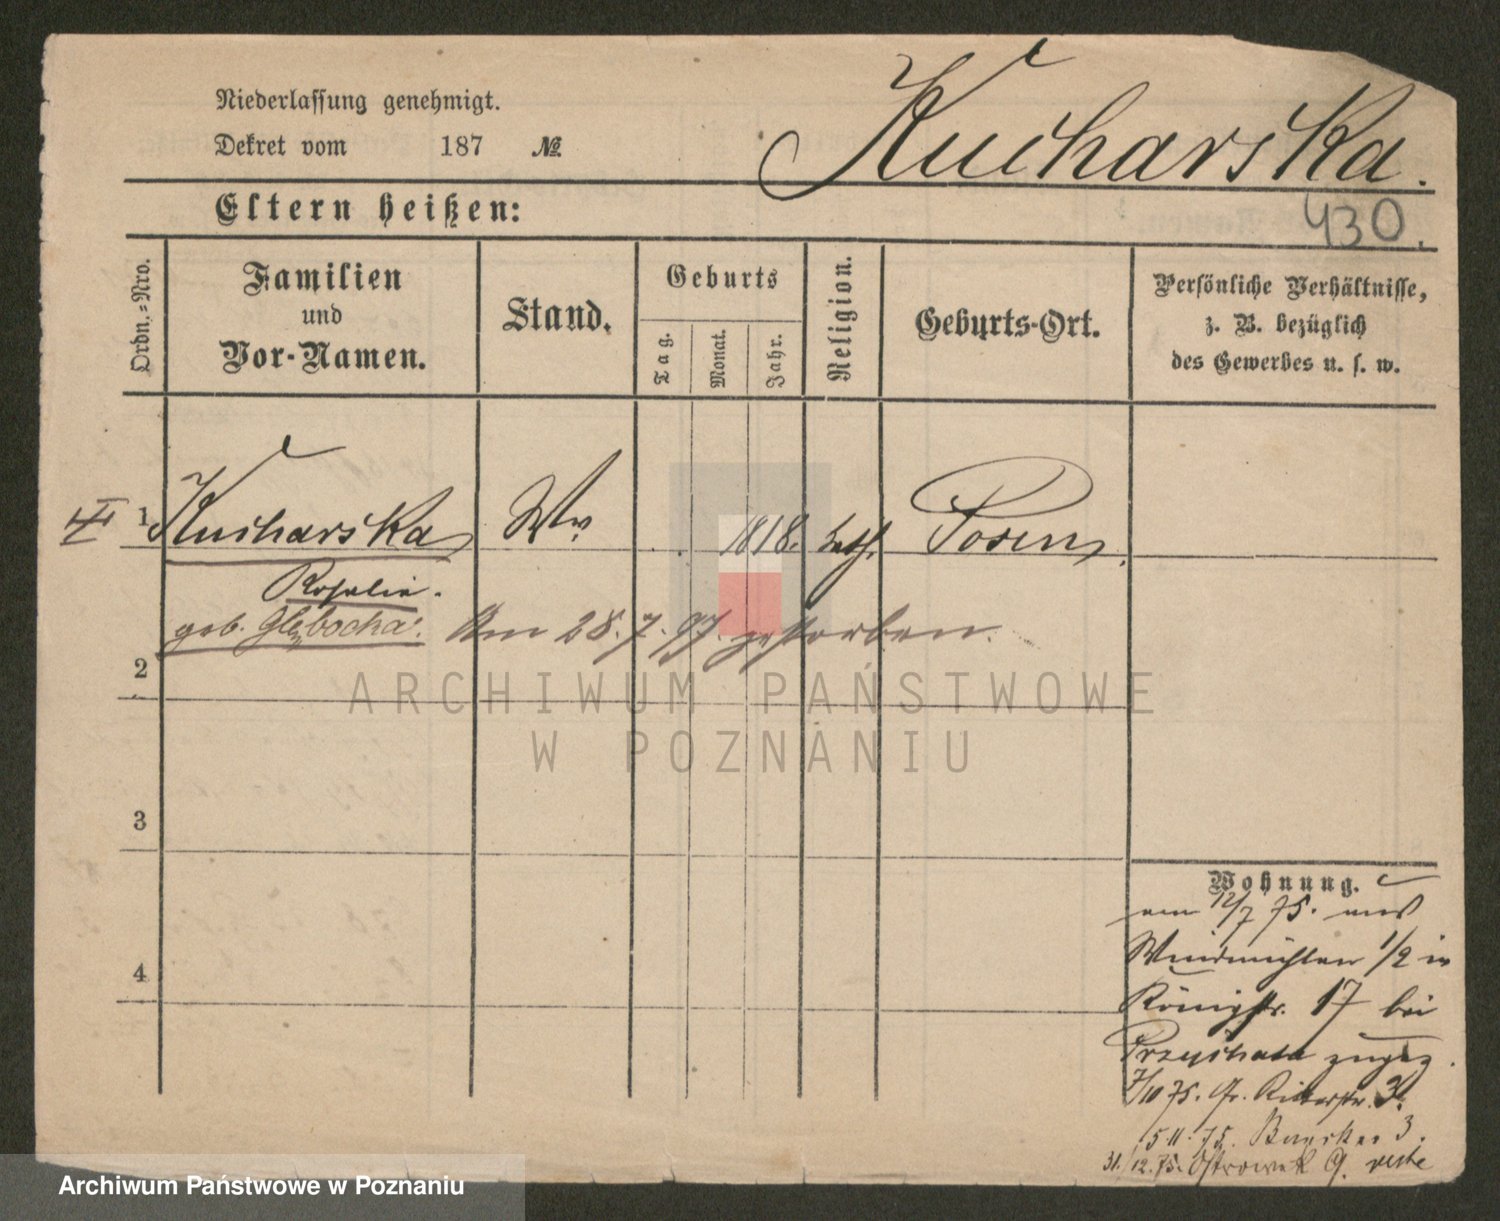 Niederlassung genehmigt.
Dekret vom 187 №
Kucharska.
Eltern heißen:
430.
Ordn.-Nro.
Familien
und
Vor-Namen.
Stand.
Geburts
Tag.
Monat.
Jahr.
Religion.
Geburts-Ort.
Persönliche Verhältnisse,
z. B. bezüglich
des Gewerbes u. s. w.
1 Kucharska Ww 1818. kath. Posen
Rosalie.
geb. Głębocka. Am 28.7.97 gestorben.
2
ARCHIWUM PAŃSTWOWE
W POZNANIU
3
4
Wohnung.
am 12/7 75. aus
Windmühlen 1/2 in
Königstr. 17 bei
zugez.
7/10 75. Gr. Ritterstr. 3.
15 11. 75. 3.
31./12.75. Ostrowek 9.
Archiwum Państwowe w Poznaniu